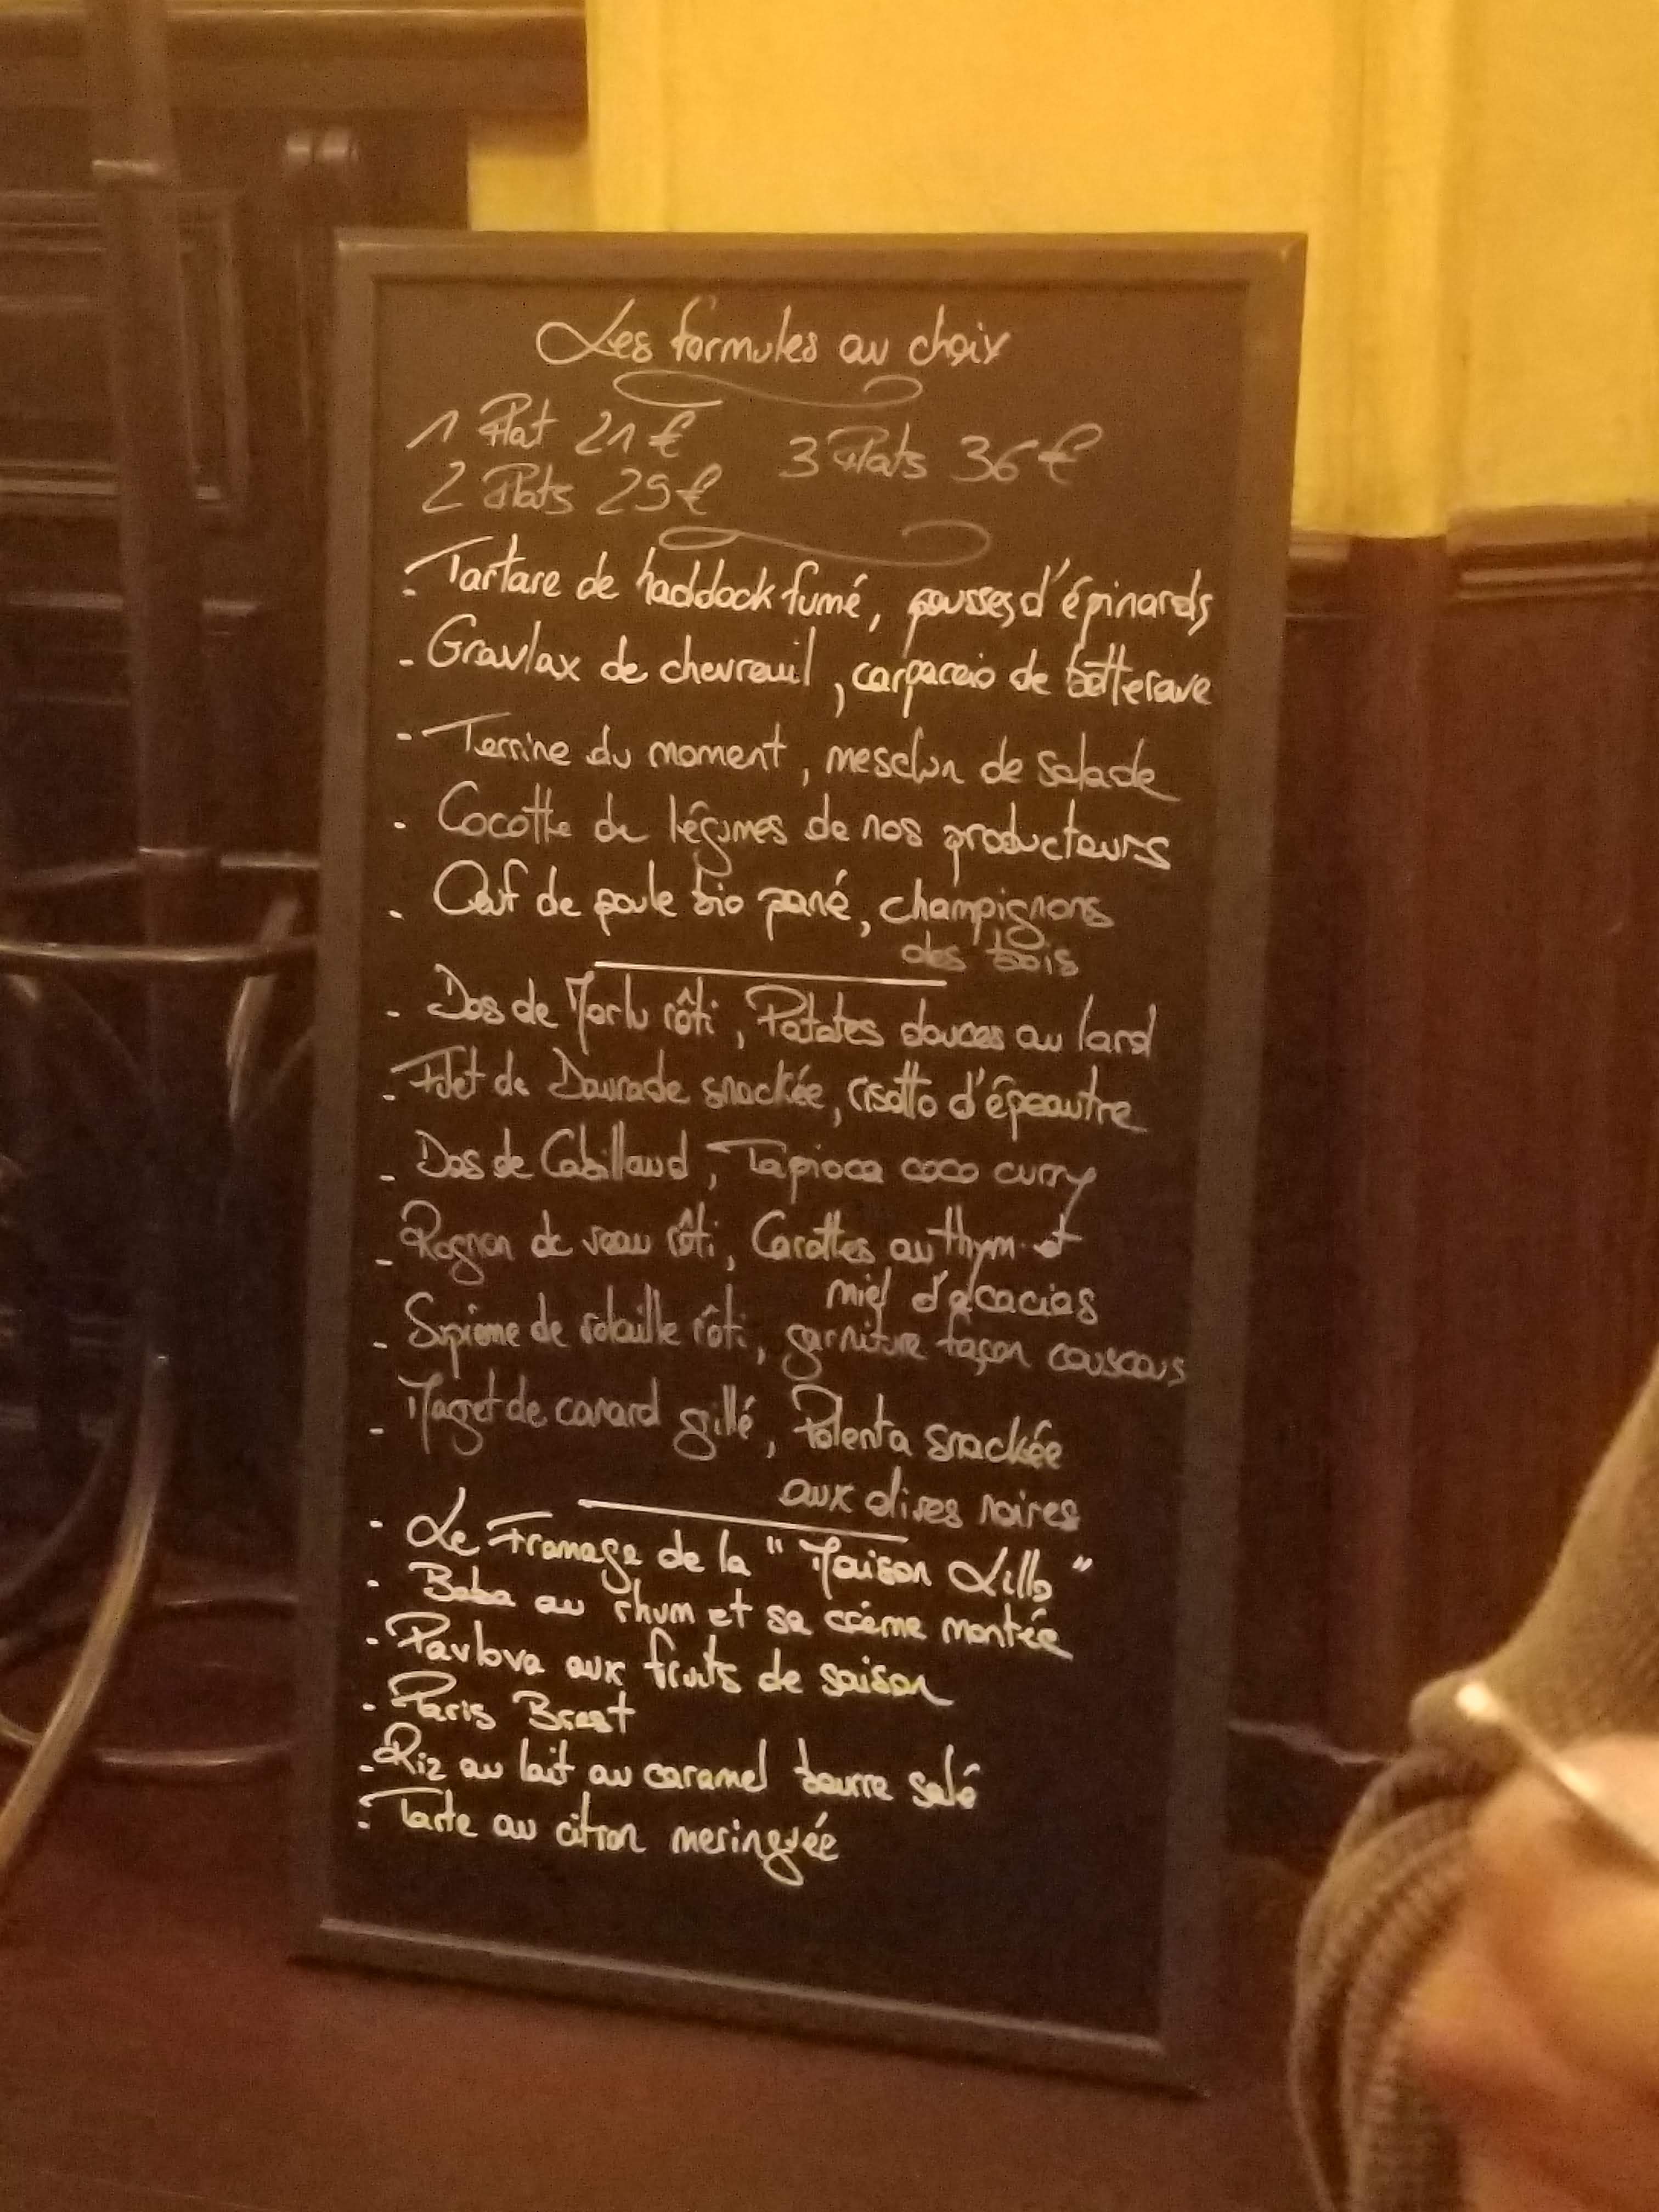 Les formules au choix
1 Plat 21€
2 Plats 29€
3 Plats 36€
- Tartare de haddock fumé, pousses d'épinards
- Gravlax de chevreuil, carpaccio de betterave
- Terrine du moment, mesclun de salade
- Cocotte de légumes de nos producteurs
- Œuf de poule bio pané, champignons
des bois
- Dos de Merlu rôti, Patates douces au lard
- Filet de Daurade snackée, risotto d'épeautre
- Dos de Cabillaud, Tapioca coco curry
- Rognon de veau rôti, Carottes au thym et
miel d'acacias
- Suprême de volaille rôti, garniture façon couscous
- Magret de canard grillé, Polenta snackée
aux olives noires
- Le Fromage de la "Maison Lillo"
- Baba au rhum et sa crème montée
- Pavlova aux fruits de saison
- Paris Brest
- Riz au lait au caramel beurre salé
- Tarte au citron meringuée